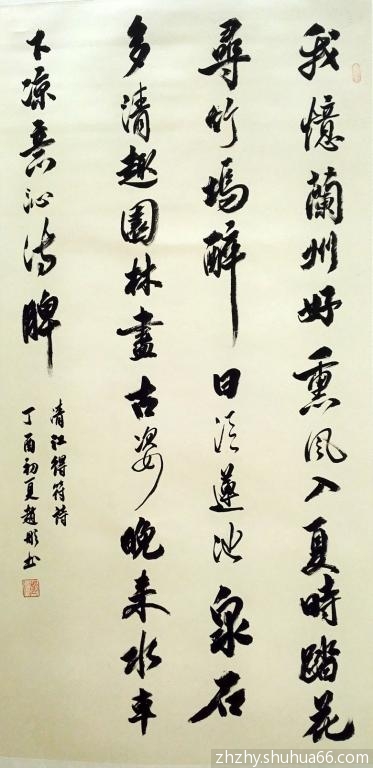 我憶蘭州好熏風入夏時踏花
尋竹塢醉日泛蓮池泉石
多清趣園林盡古姿晚來水車
下涼意沁詩脾
清江得符詩
丁酉初夏趙彤書
zhzhy.shuhua66.com